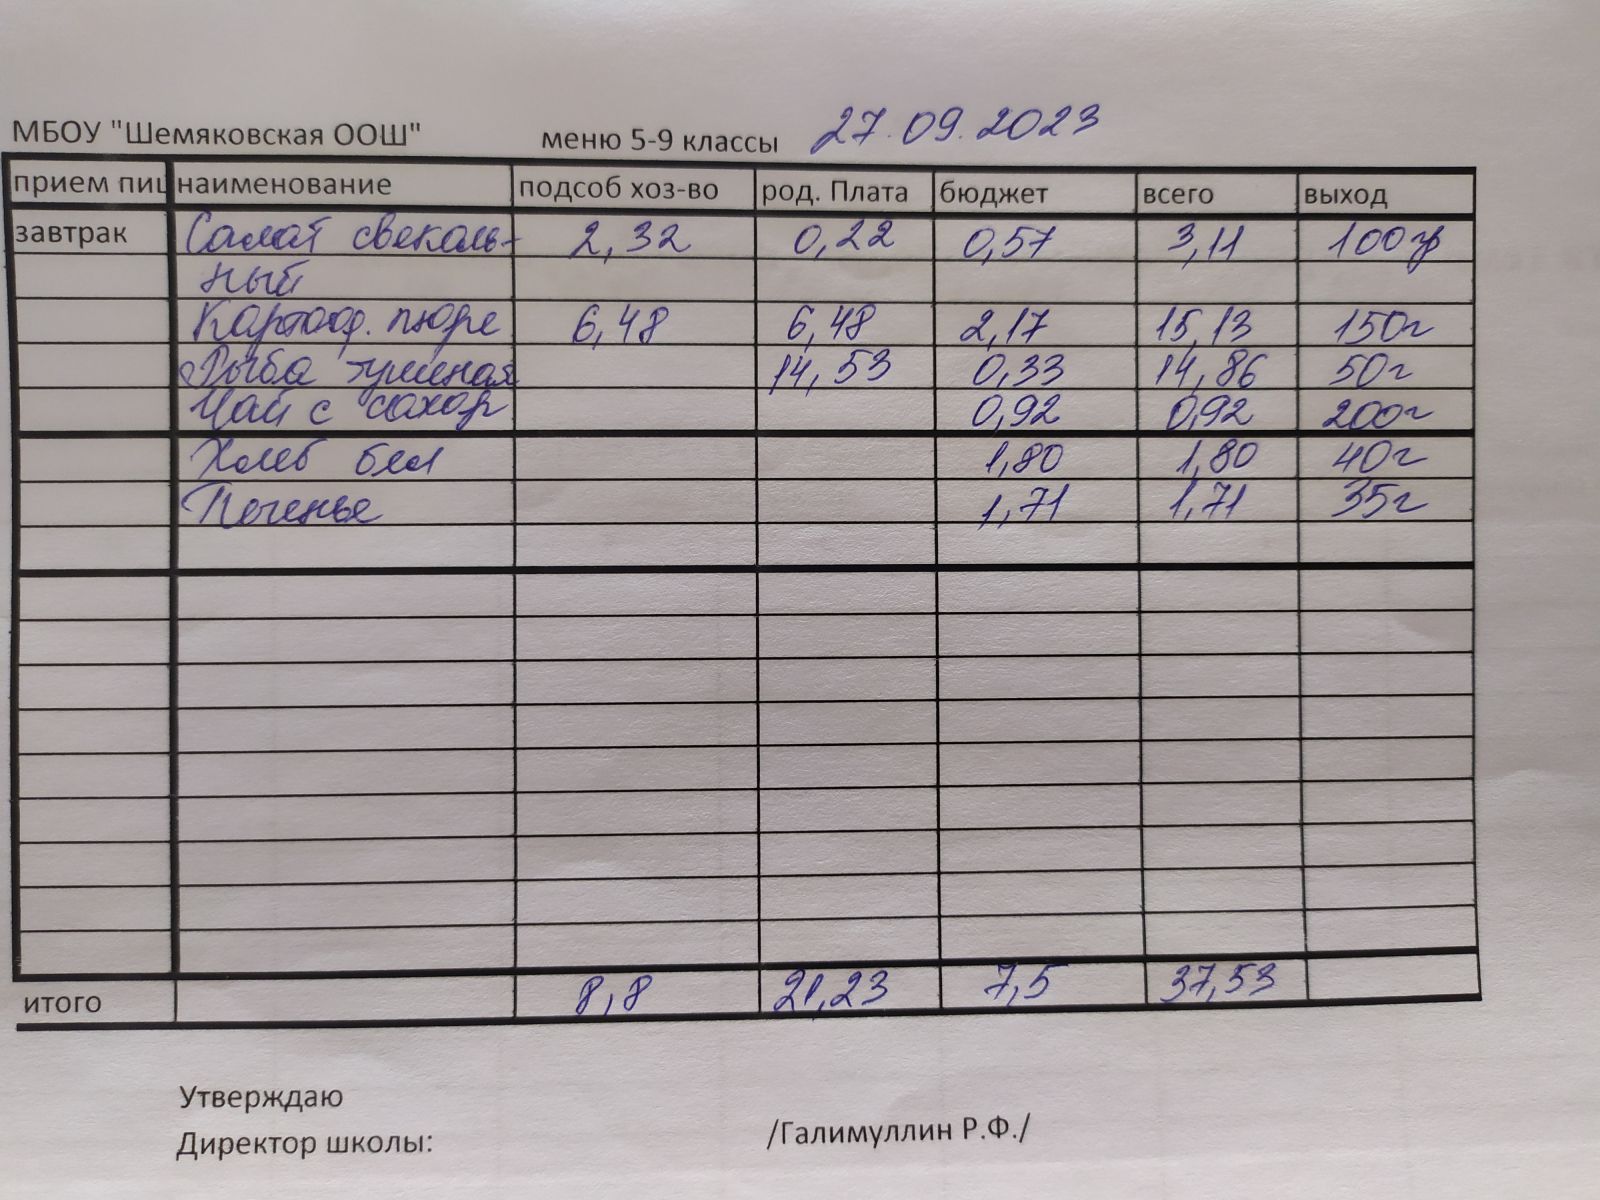 МБОУ "Шемяковская ООШ" меню 5-9 классы 27.09.2023
прием пищ наименование подсоб хоз-во род. Плата бюджет всего выход
завтрак Салат свеколь- 2,32 0,22 0,57 3,11 100гр
ный
Картоф. пюре 6,48 6,48 2,17 15,13 150г
Рыба тушеная 14,53 0,33 14,86 50г
Чай с сахар 0,92 0,92 200г
Хлеб бел 1,80 1,80 40г
Печенье 1,71 1,71 35г
итого 8,8 21,23 7,5 37,53
Утверждаю
Директор школы: /Галимуллин Р.Ф./